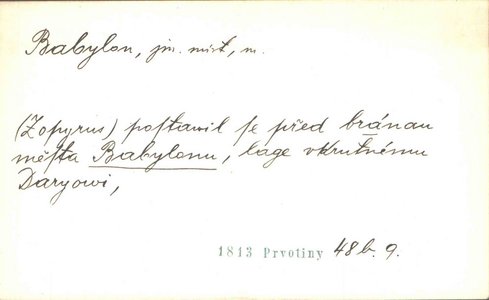 Babylon, jm. míst, m.
(Zopyrus) postawil se před bránau
města Babylonu, láge vkrutnému
Daryowi,
1813 Prvotiny 48b. 9.